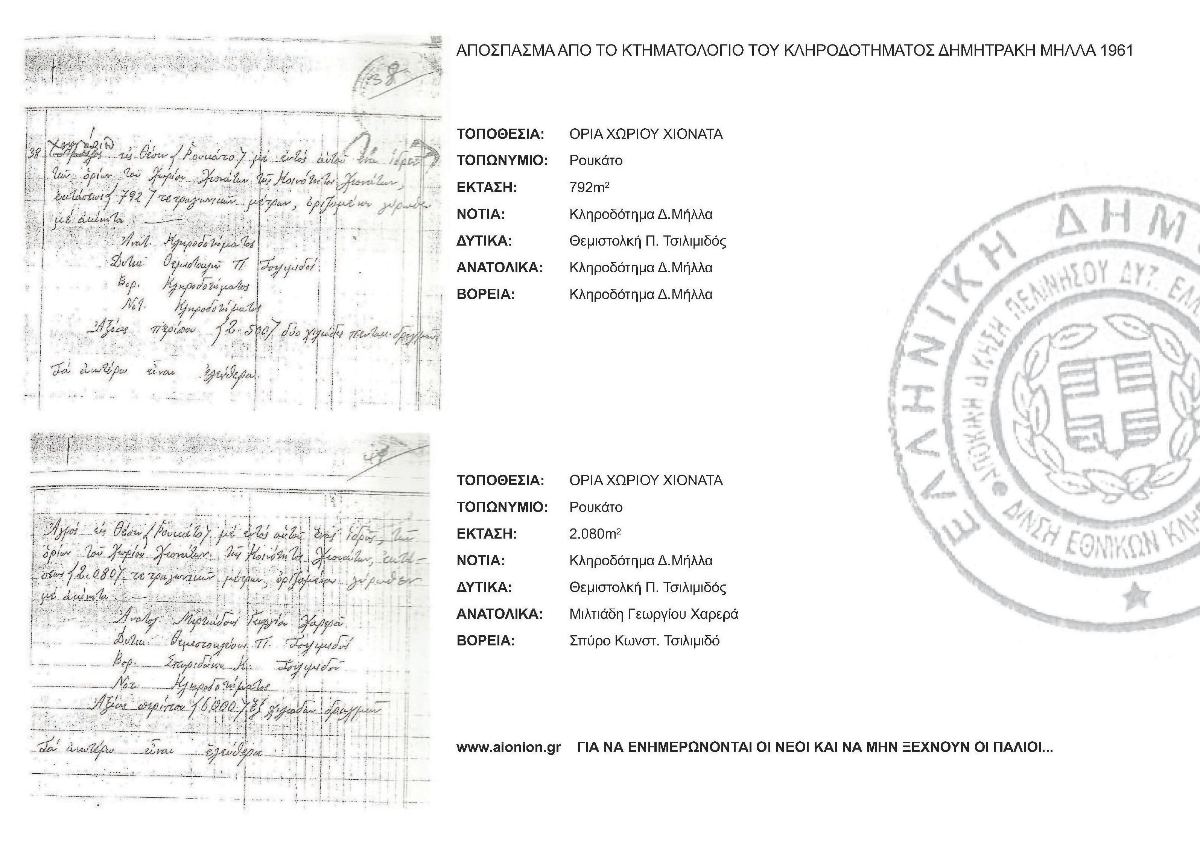 ΑΠΟΣΠΑΣΜΑ ΑΠΟ ΤΟ ΚΤΗΜΑΤΟΛΟΓΙΟ ΤΟΥ ΚΛΗΡΟΔΟΤΗΜΑΤΟΣ ΔΗΜΗΤΡΑΚΗ ΜΗΛΛΑ 1961
38
38 εις θέσιν (Ρουκάτο) με εντός αυτού
των ορίων του χωρίου Χιονάτων της Κοινότητος Χιονάτων,
εκτάσεως (792) τετραγωνικών μέτρων, οριζομένου γύρωθεν
με ακίνητα
Ανατ. Κληροδοτήματος
Δυτικ. Θεμιστοκλή Π. Τσιλιμιδού
Βορ. Κληροδοτήματος
Νοτ. Κληροδοτήματος
Αξίας περίπου (2.500) δύο χιλιάδες
Τα ανωτέρω είναι ελεύθερα.
ΤΟΠΟΘΕΣΙΑ: ΟΡΙΑ ΧΩΡΙΟΥ ΧΙΟΝΑΤΑ
ΤΟΠΩΝΥΜΙΟ: Ρουκάτο
ΕΚΤΑΣΗ: 792m²
ΝΟΤΙΑ: Κληροδότημα Δ.Μήλλα
ΔΥΤΙΚΑ: Θεμιστολκή Π. Τσιλιμιδός
ΑΝΑΤΟΛΙΚΑ: Κληροδότημα Δ.Μήλλα
ΒΟΡΕΙΑ: Κληροδότημα Δ.Μήλλα
Αγρός εις θέσιν (Ρουκάτο) με εντός αυτού
ορίων του χωρίου Χιονάτων, της Κοινότητος Χιονάτων, εκτά-
σεως (2.080) τετραγωνικών μέτρων, οριζομένου γύρωθεν
με ακίνητα
Ανατ. Μιλτιάδους Γεωργίου Χαρερά
Δυτικ. Θεμιστοκλέους Π. Τσιλιμιδού
Βορ. Σπυρίδωνος Κ. Τσιλιμιδού
Νοτ. Κληροδοτήματος
Αξίας περίπου (6.000) έξ χιλιάδων δραχμών
Τα ανωτέρω είναι ελεύθερα
ΤΟΠΟΘΕΣΙΑ: ΟΡΙΑ ΧΩΡΙΟΥ ΧΙΟΝΑΤΑ
ΤΟΠΩΝΥΜΙΟ: Ρουκάτο
ΕΚΤΑΣΗ: 2.080m²
ΝΟΤΙΑ: Κληροδότημα Δ.Μήλλα
ΔΥΤΙΚΑ: Θεμιστολκή Π. Τσιλιμιδός
ΑΝΑΤΟΛΙΚΑ: Μιλτιάδη Γεωργίου Χαρερά
ΒΟΡΕΙΑ: Σπύρο Κωνστ. Τσιλιμιδό
ΕΛΛΗΝΙΚΗ ΔΗΜ
ΠΕΛΙΝΗΣΟΥ ΔΥΤ. ΕΛ
Δ/ΝΣΗ ΕΘΝΙΚΩΝ ΚΛΗ
www.aionion.gr ΓΙΑ ΝΑ ΕΝΗΜΕΡΩΝΟΝΤΑΙ ΟΙ ΝΕΟΙ ΚΑΙ ΝΑ ΜΗΝ ΞΕΧΝΟΥΝ ΟΙ ΠΑΛΙΟΙ...